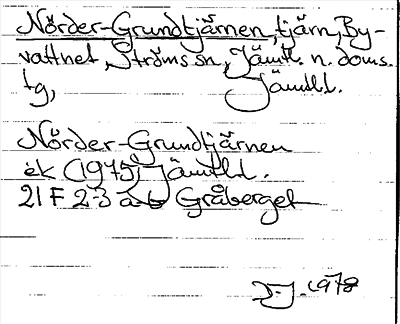 Nörder-Grundtjärnen, tjärn, By-
vattnet, Ströms sn, Jämtl. n. doms.
tg, Jämtl.l.
Nörder-Grundtjärnen
ek (1975) Jämtl.l.
21 F 2-3 a-b Gråberget
D-J. 1978